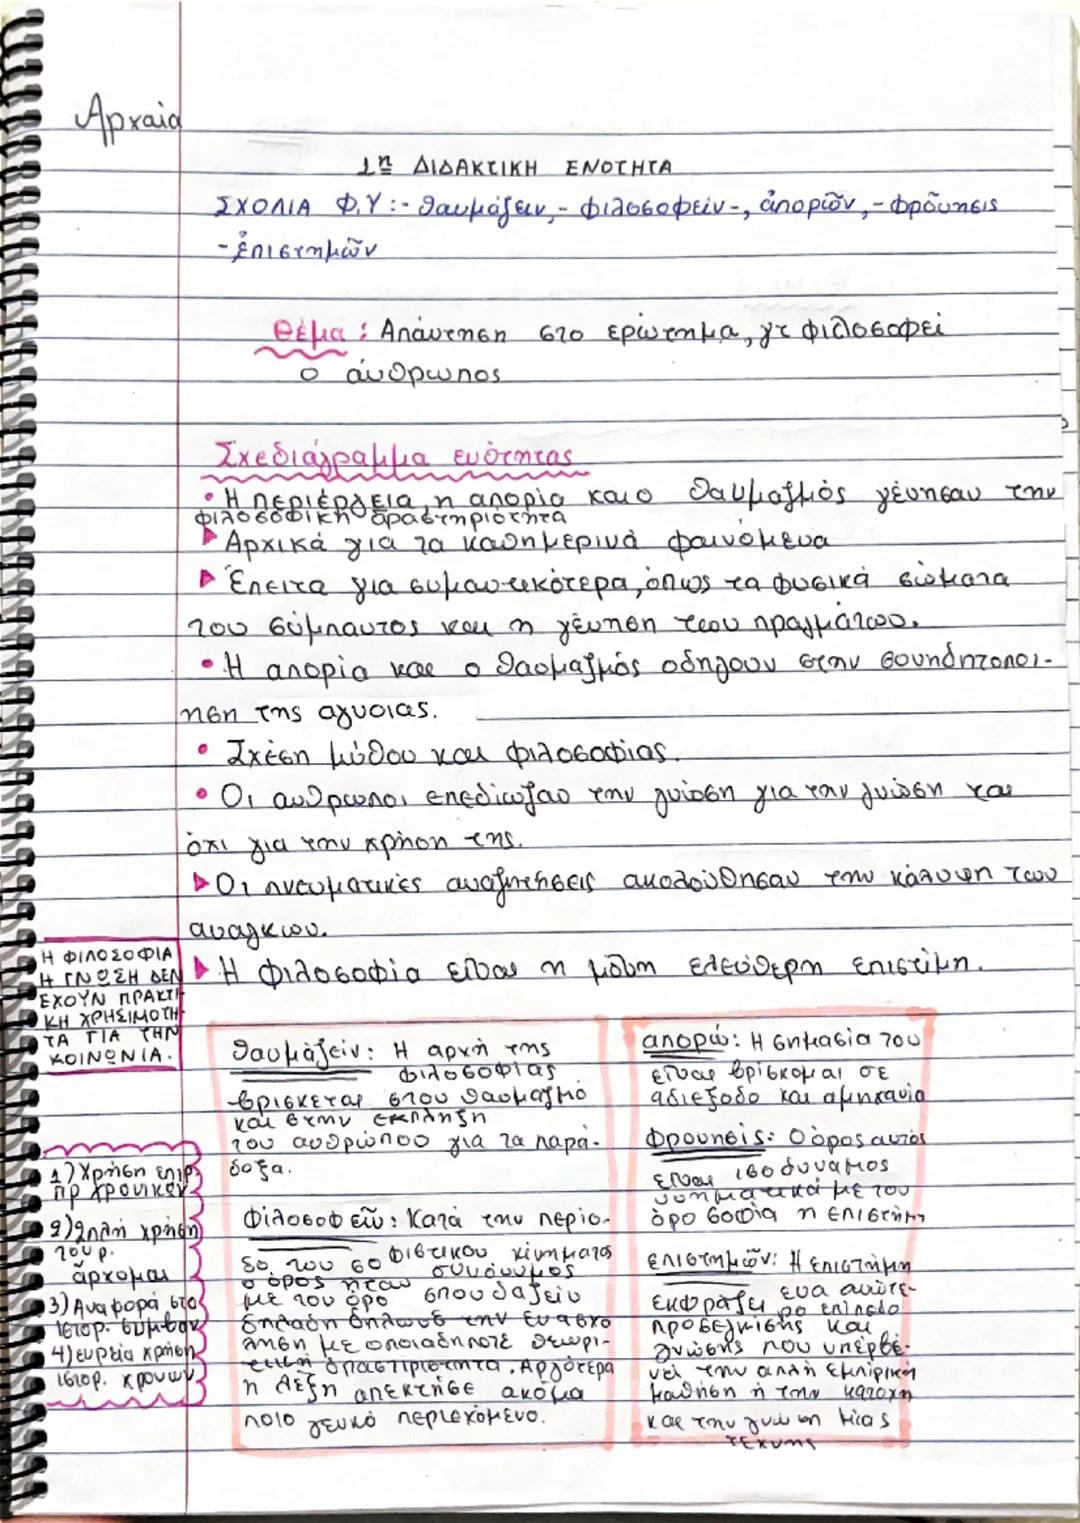 Αρχαία
1η ΔΙΔΑΚΤΙΚΗ ΕΝΟΤΗΤΑ
ΣΧΟΛΙΑ Φ.Υ :- θαυμάζειν,- φιλοσοφείν-, ἀπορῶν,- φρόνησις
-ἐπιστημῶν
Θέμα : Απάντηση στο ερώτημα, γτ φιλοσοφεί
ο άνθρωπος
Σχεδιάγραμμα ενότητας
• Η περιέργεια, η απορία και ο θαυμασμός γέννησαν την
φιλοσοφική δραστηριότητα
▶ Αρχικά για τα καθημερινά φαινόμενα
▶ Έπειτα για σημαντικότερα, όπως τα φυσικά σώματα
του σύμπαντος και η γέννηση των πραγμάτων.
• Η απορία και ο θαυμασμός οδηγούν στην συνηδητοποί-
ηση της άγνοιας.
• Σχέση μύθου και φιλοσοφίας.
• Οι άνθρωποι επεδίωξαν την γνώση για την γνώση και
όχι για την χρήση της.
▶ Οι πνευματικές αναζητήσεις ακολούθησαν την κάλυψη των
αναγκών.
▶ Η φιλοσοφία είναι η μόνη ελεύθερη επιστήμη.
Η ΦΙΛΟΣΟΦΙΑ
Η ΓΝΩΣΗ ΔΕΝ
ΕΧΟΥΝ ΠΡΑΚΤΙ
ΚΗ ΧΡΗΣΙΜΟΤΗ
ΤΑ ΓΙΑ ΤΗΝ
ΚΟΙΝΩΝΙΑ.
1) Χρήση επιρ
πρ χρονικών
2) διπλή χρήση
του ρ.
άρχομαι
3) Αναφορά στα
ιστορ. συμβάν
4) ευρεία χρήση
ιστορ. χρόνων
θαυμάζειν: Η αρχή της
φιλοσοφίας
βρίσκεται στον θαυμασμό
και στην έκπληξη
του ανθρώπου για τα παρά-
δοξα.
Φιλοσοφεῖν: Κατά την περίο-
δο του σοφιστικού κινήματος
ο όρος ήταν συνώνυμος
με τον όρο σπουδάζειν
δηλαδή δήλωνε την ενασχό
ληση με οποιαδήποτε θεωρη-
τική δραστηριότητα. Αργότερα
η λέξη απέκτησε ακόμα
ποιο γενικό περιεχόμενο.
απορώ: Η σημασία του
είναι βρίσκομαι σε
αδιέξοδο και αμηχανία
Φρονησις: Ο όρος αυτός
είναι ισοδύναμος
νοηματικά με τον
όρο σοφία η επιστήμη
επιστημῶν: Η επιστήμη
εκφράζει ένα ανώτε-
ρο επίπεδο
προσέγγισης και
γνώσης που υπερβαί-
νει την απλή εμπειρική
μάθηση ή την κατοχή
και την γνώση μιας
τέχνης